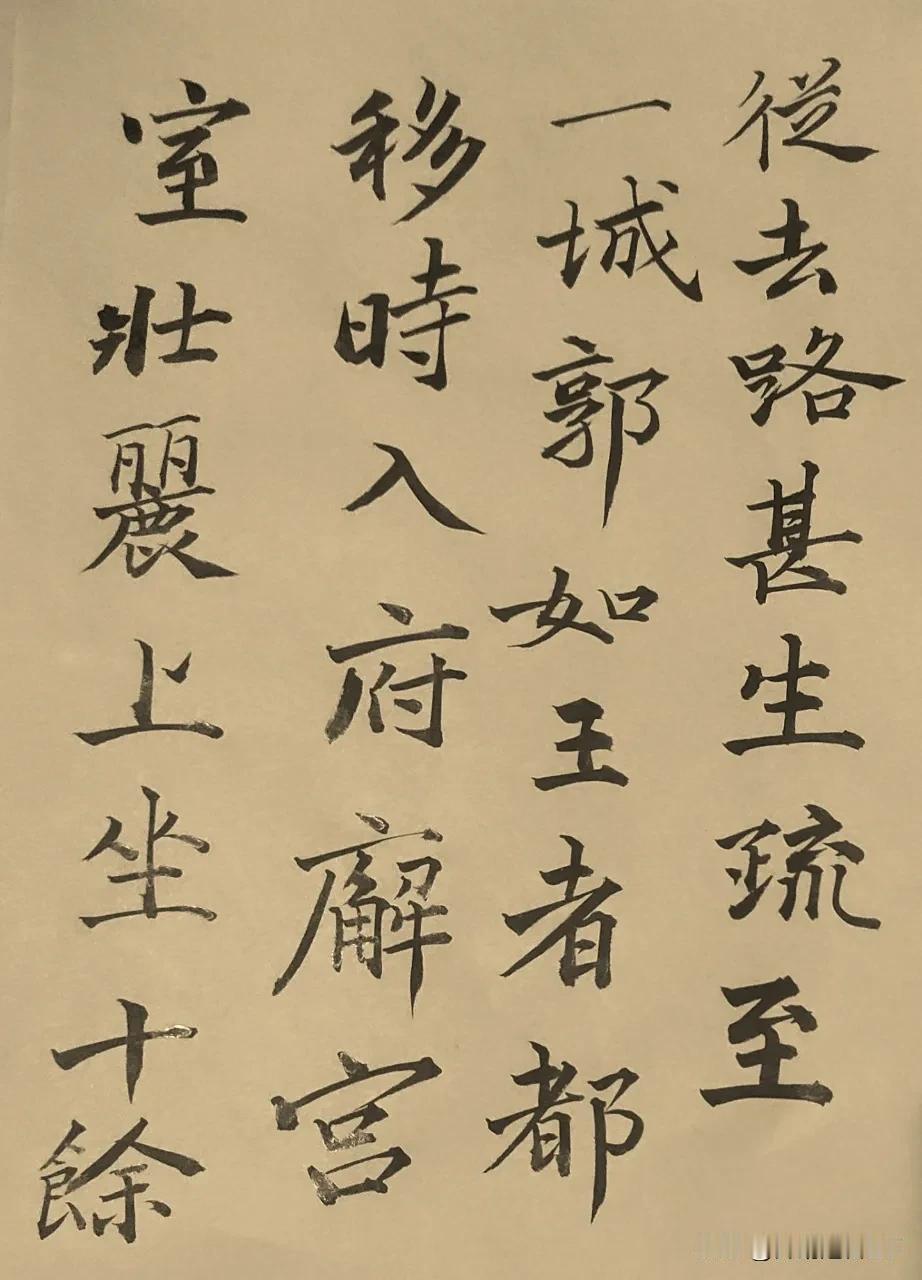 從去路甚生疏至
一城郭如王者都
移時入府廨宮
室壯麗上坐十餘